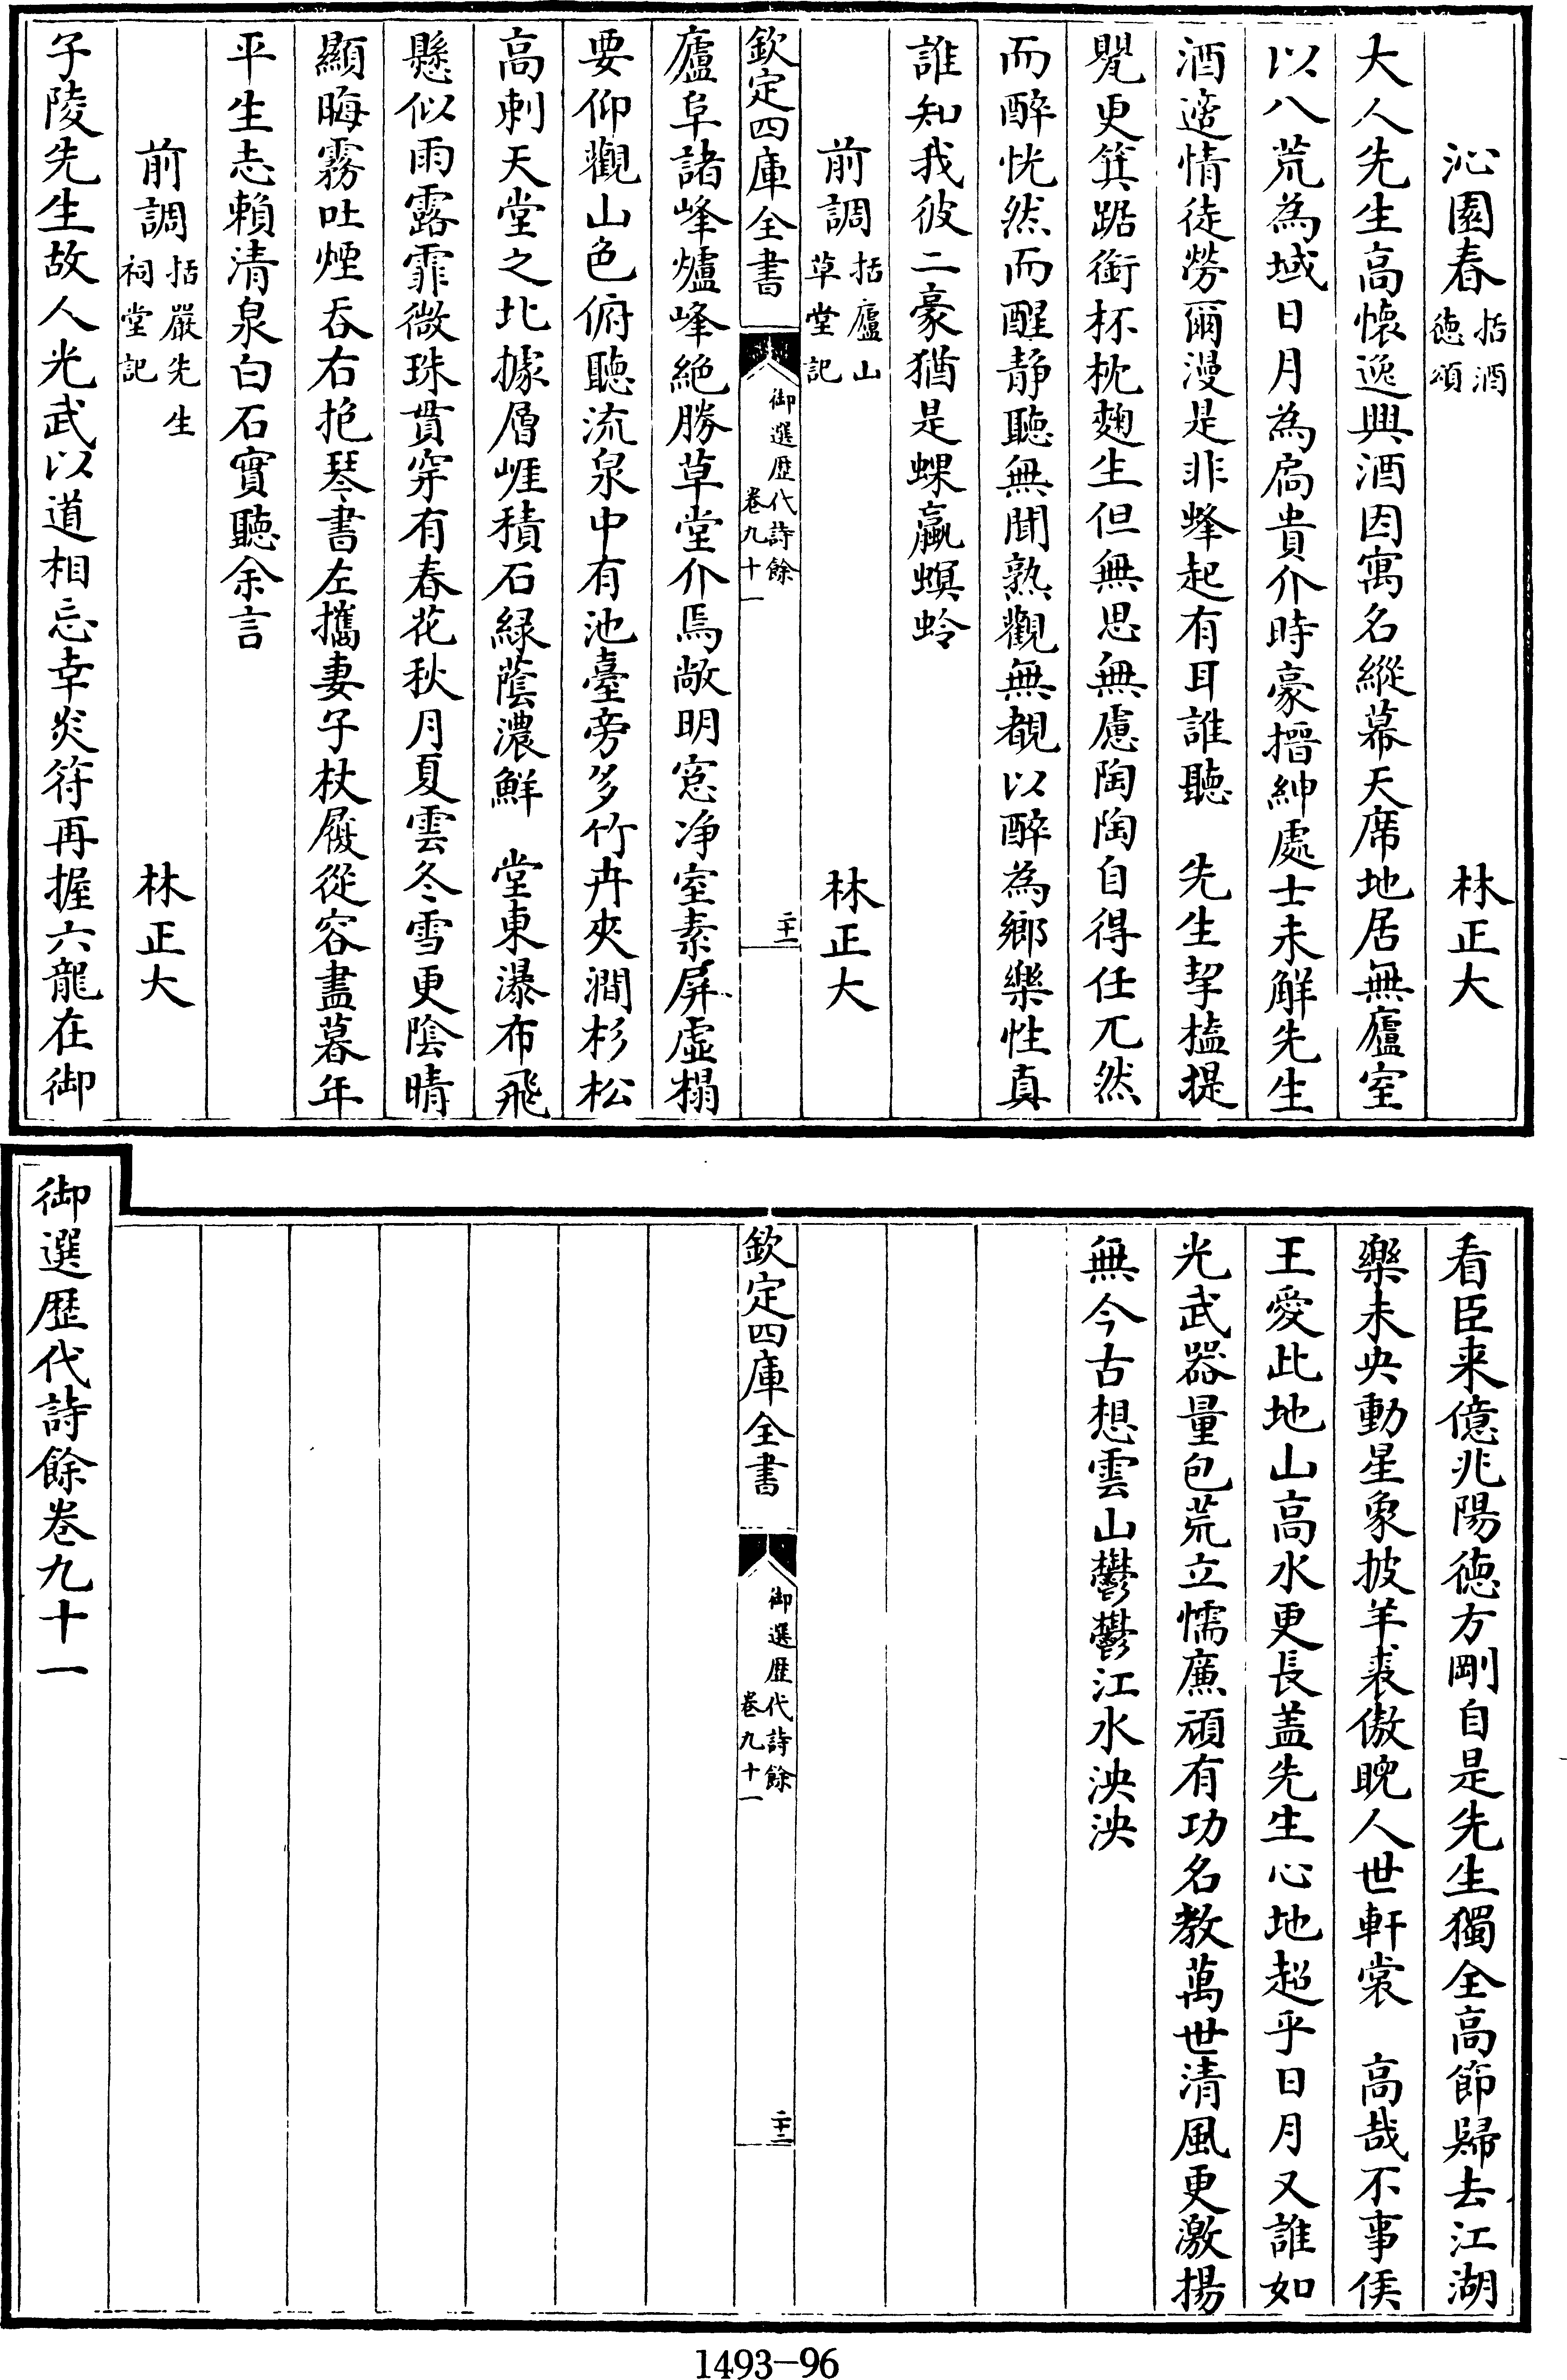 沁園春括酒德頌　林正大
大人先生高懷逸興酒因寓名縱幕天席地居無廬室
以八荒為域日月為扃貴介時豪搢紳處士未解先生
酒適情徒勞爾漫是非蜂起有耳誰聽　先生挈榼提
甖更箕踞銜杯枕麴生但無思無慮陶陶自得任兀然
而醉恍然而醒静聽無聞熟觀無覩以醉為鄉樂性真
誰知我彼二豪猶是蜾蠃螟蛉
前調括廬山草堂記　林正大
欽定四庫全書　御選歴代詩餘卷九十一　二十一
廬阜諸峰爐峰絶勝草堂介焉敞明窓净室素屏虛榻
要仰觀山色俯聽流泉中有池臺旁多竹卉夾澗杉松
高刺天堂之北據層崕積石緑蔭濃鮮　堂東瀑布飛
懸似雨露霏微珠貫穿有春花秋月夏雲冬雪更陰晴
顯晦霧吐煙吞右抱琴書左攜妻子杖履從容盡暮年
平生志賴清泉白石實聽余言
前調括嚴先生祠堂記　林正大
子陵先生故人光武以道相忘幸炎符再握六龍在御
看臣来億兆陽徳方剛自是先生獨全高節歸去江湖
樂未央動星象披羊裘傲睨人世軒裳　高哉不事侯
王愛此地山高水更長盖先生心地超乎日月又誰如
光武器量包荒立懦廉頑有功名教萬世清風更激揚
無今古想雲山鬱鬱江水泱泱
欽定四庫全書　御選歴代詩餘卷九十一　二十二
御選歴代詩餘卷九十一
1493—96